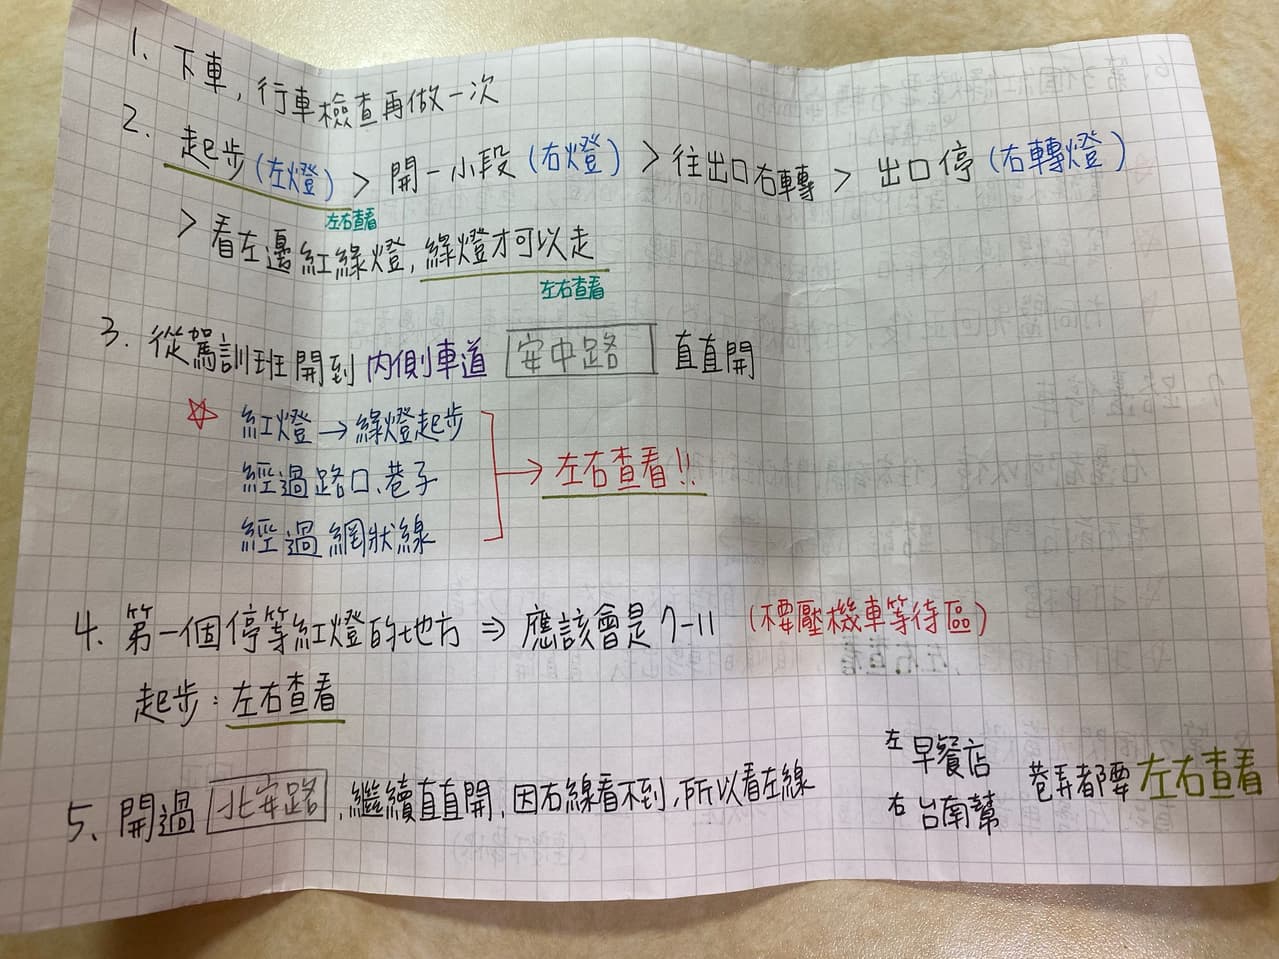 1. 下車，行車檢查再做一次
2. 起步(左燈) > 開一小段(右燈) > 往出口右轉 > 出口停(右轉燈)
左右查看
> 看左邊紅綠燈，綠燈才可以走
左右查看
3. 從駕訓班開到內側車道 安中路 直直開
☆ 紅燈→綠燈起步
經過路口、巷子 → 左右查看!!
經過網狀線
4. 第一個停等紅燈的地方 ⇒ 應該會是7-11 (不要壓機車等待區)
起步：左右查看
5. 開過 北安路，繼續直直開，因右線看不到，所以看左線
左 早餐店
右 台南幫
巷弄都要左右查看